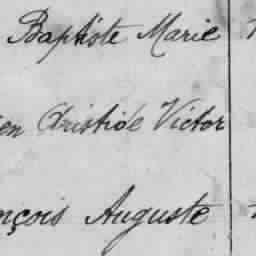 Baptiste Marie
en Aristide Victor
nçois Auguste